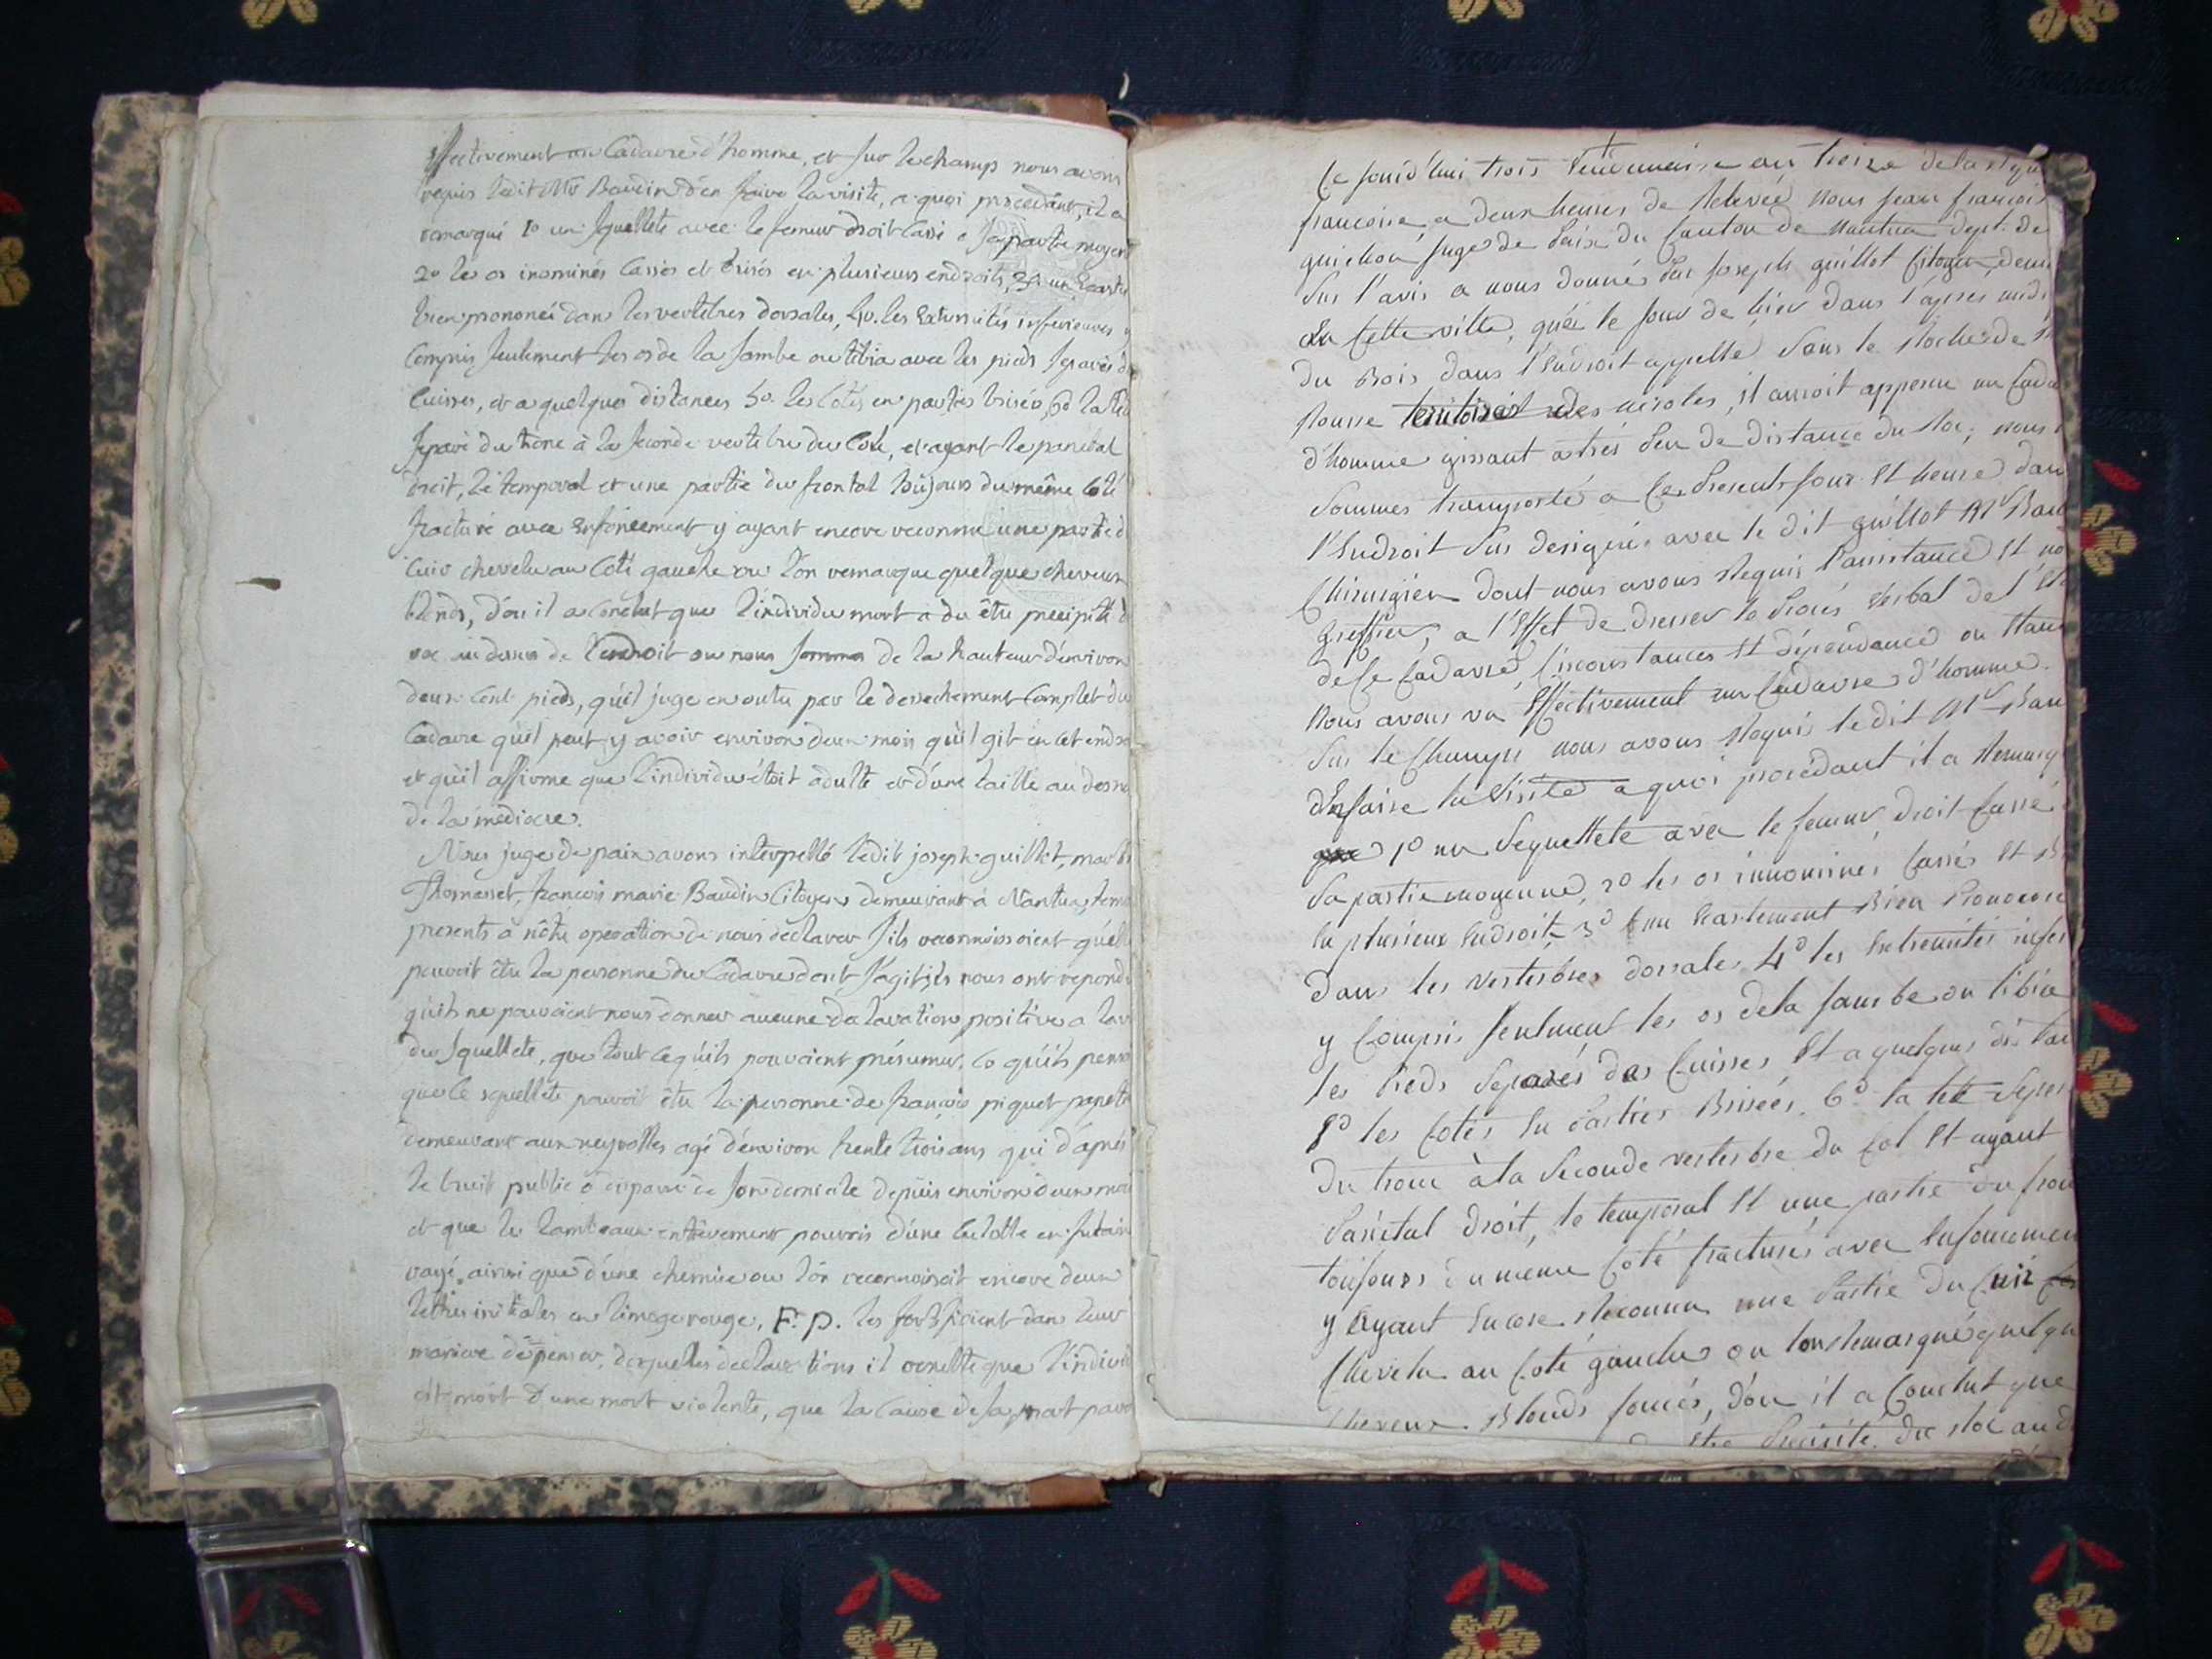 effectivement un Cadavre d'homme, et sur le champs nous avons
requis ledit Mr Baudin d'en faire la visite, a quoi procedant, il a
remarqué 1o un squellete avec le femur droit Cassé a sa partie moyen
2o les os inominés Cassés et brisés en plusieurs endroits, 3o un Ecarte
bien prononcé dans les vertebres dorsales, 4o. les Extremités inferieures y
Compris seulement les os de la Jambe ou tibia avec les pieds separés d
Cuisses, et a quelques distances 5o. les Cotés en parties brisées, 6o la tê
separé du trone à la seconde vertebre du Col, et ayant le parietal
droit, le temporal et une partie du frontal toujours du même Coté
fracturé avec enfoncement y ayant encore reconnu une partie d
Cuir chevelu au Coté gauche ou l'on remarque quelque cheveux
blonds, d'ou il a Conclut que l'individu mort a du être precipité d
roc au dessus de l'endroit ou nous sommes de la hauteur d'environ
deux Cent pieds, qu'il juge en outre par le dessechement Complet du
Cadavre qu'il peut y avoir environ deux mois qu'il git en cet endro
et qu'il affirme que l'individu étoit adulte et d'une taille au dessu
de la mediocre.
Nous juge de paix avons interpellé ledit joseph guillot, mar
Thomasset, françois marie Baudin Citoyens demeurant à Nantua, tem
presents à nôtre operation de nous declarer s'ils reconnoissoient quell
pouvoit être la personne du Cadavre dont s'agit, ils nous ont repond
qu'ils ne pouvoient nous donner aucune declaration positive a la v
du squellete, que tout ce qu'ils pouvoient présumer, c'o qu'ils pens
que le squellete pouvoit être la personne de françois piquet papet
demeurant aux neyrolles agé d'environ trente trois ans qui d'aprés
le bruit public a disparu de son domicile depuis environ deux moi
et que les lambeaux entierement pourris d'une Culotte en futain
rayé, ainsi que d'une chemise ou l'on reconnoissoit encore deux
lettres initiales en limoge rouge, F. P. les fortifioient dans leur
maniere de penser, desquelles declarations il resulte que l'indivi
est mort d'une mort violente, que la Cause de sa mort paro
Ce jourd'hui trois Vendemiaire an treize de la repu
francoise a deux heures de Relevée nous jean françois
guichon juge de Paix du Canton de Nantua dept. de
Sur l'avis a nous donné par Joseph guillot Citoyen deme
En Cette ville, que le jour de hier dans l'apres midi
du Bois dans l'Endroit appellé Sous le Rocher de
Rousse territoire des nerolles, il auroit apperçu un Cada
d'homme gissant a très Peu de distance du Roc, nous
Sommes transporté a Ces Presents jour Et heure dan
l'Endroit Sus designé avec le dit guillot Mr Bau
Chirurgien dont nous avons Requis l'assistance Et no
greffier, a l'Effet de dresser le Procés Verbal de l'Et
de Ce Cadavre, Circonstances Et dépendance ou Etant
Nous avons vu Effectivement un Cadavre d'homme.
Sur le Champs nous avons Requis le dit Mr Bau
d'En faire la Visite a quoi procédant il a Remarq
1o un Sequellete avec le femur droit Cassé
Sa partie moyenne, 2o les os innominés Cassés Et B
En plusieurs Endroits 3o un Ecartement Bien Prononcé
dans les vertesbres dorsales 4o les Extremités infer
y Compris seulment les os de la Jambe ou tibia
les Pieds Separés des Cuisses Et a quelques dis tan
5o les Cotés En Parties Brisées. 6o la tete Separ
du trone à la Seconde vertesbre du Col Et ayant
Pariétal droit, le temporal Et une partie du fron
toujours du même Coté fracturés avec Enfoncemen
y Eyant Encore Reconnu une Partie du Cuir
Chevelu au Coté gauche ou l'on Remarqué quelqu
Cheveux Blonds foncés, d'ou il a Conclut que
Etre Precipité du Roc au d